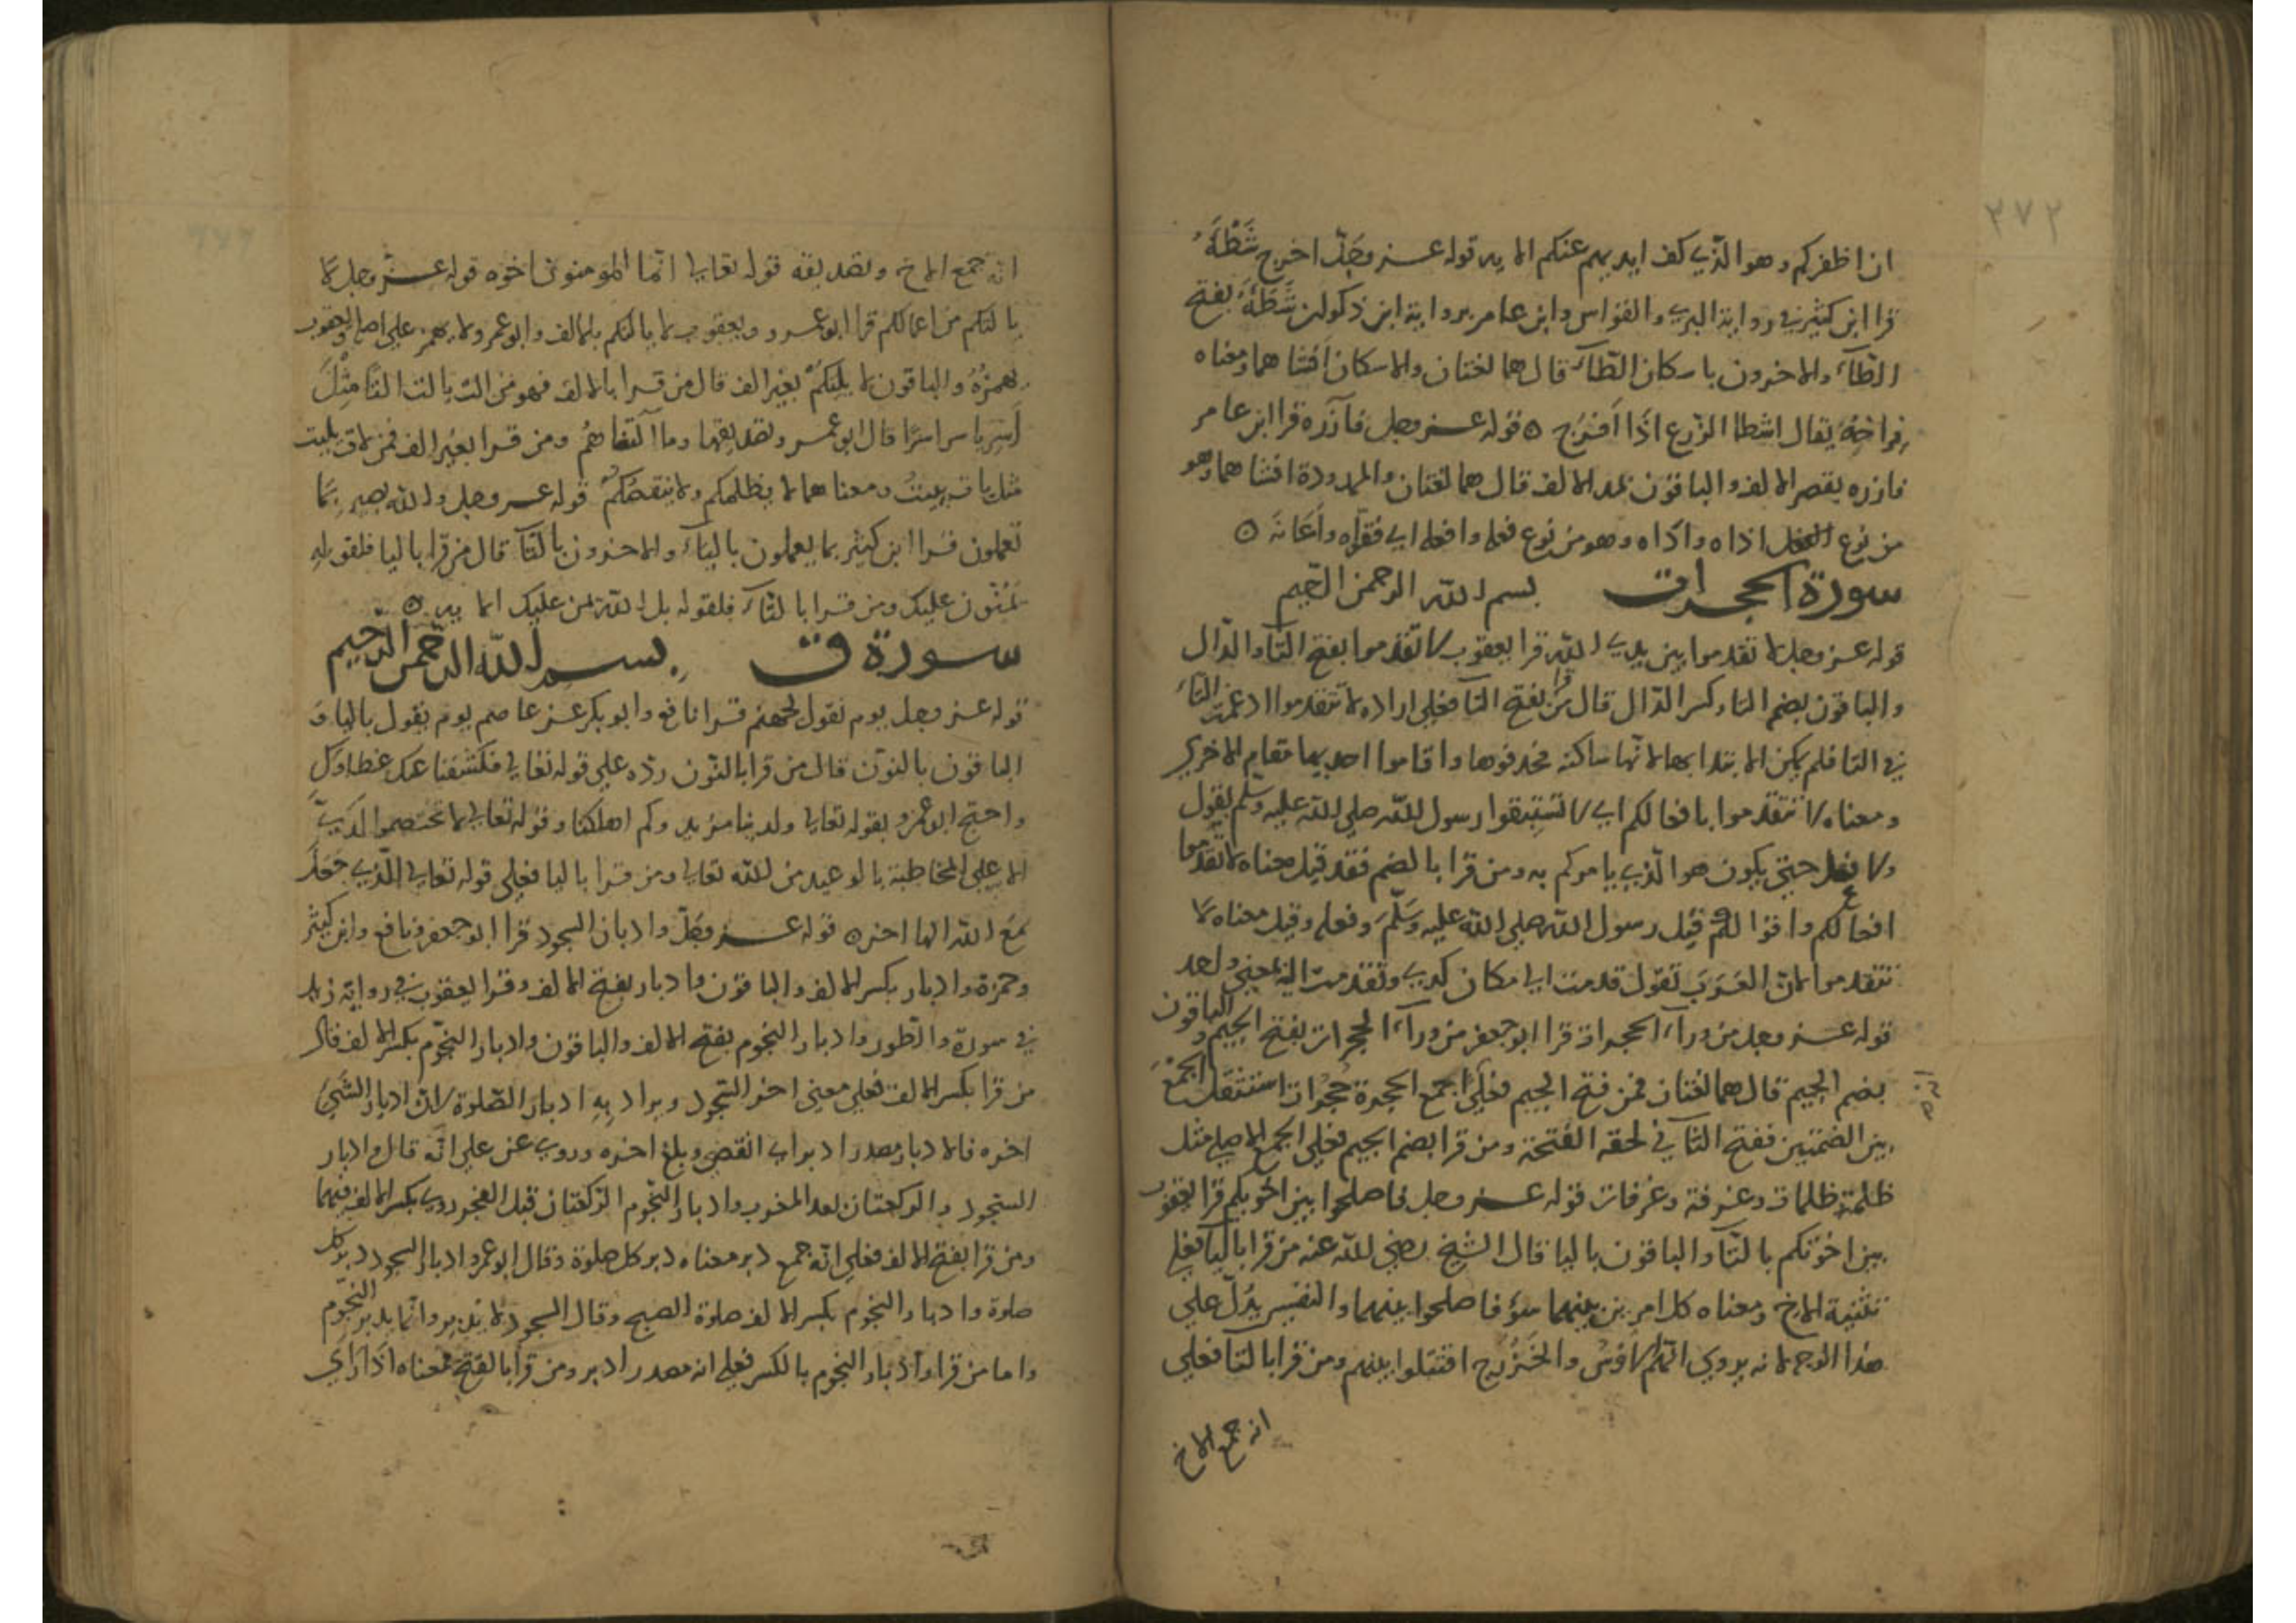 ٣٧٢
ان اظفركم وهو الذي كف ايديهم عنكم الايه قوله عز وجل اخرج شطأه
قرا ابن كثير في رواية البزي والقواس وابن عامر برواية ابن ذكوان شطأه بفتح
الطاء والاخرون باسكان الطاء قال هما لغتان والاسكان افشاهما ومعناه
فراخه يقال اشطا الزرع اذا افرخ ٥ قوله عز وجل فآزره قرا ابن عامر
فازره بقصر الالف والباقون بمد الالف قال هما لغتان والممدودة افشاهما وهو
من نوع اذاه واذاه وهو من نوع فعل وافعل اي فقواه واعانه ٥
سورة الحجرات بسم الله الرحمن الرحيم
قوله عز وجل لا تقدموا بين يدي الله قرا يعقوب لا تقدموا بفتح التا والدال
والباقون بضم التا وكسر الدال قال من قرا بفتح التا فعلى اراده لا تتقدموا ادغمت التاء
في التا فلم يكن الابتدا بها لانها ساكنه فحذفوها واقاموا احديهما مقام الاخرى
ومعناه لا تتقدموا بافعالكم اي لا تستبقوا رسول الله صلى الله عليه وسلم بقول
ولا فعل حتى يكون هو الذي يامركم به ومن قرا بالضم فقد قيل معناه لا تقدموا
افعالكم واقوالكم قبل رسول الله صلى الله عليه وسلم وفعله وقيل معناه لا
تتقدموا لان العرب تقول قدمت الى مكان كدي وتقدمت اليه بمعنى واحد
قوله عز وجل من وراء الحجرات قرا ابو جعفر من وراء الحجرات بفتح الجيم والباقون
بضم الجيم قال هما لغتان فمن فتح الجيم فعلى جمع الحجرة حجرات استثقل الجمع
بين الضمتين ففتح الثاني لخفه الفتحة ومن قرا بضم الجيم فعلى الجمع الاصلي مثل
ظلمة وظلمات وغرفة وغرفات قوله عز وجل فاصلحوا بين اخويكم قرا يعقوب
بين اخوتكم بالتا والباقون باليا قال الشيخ رضي الله عنه من قرا باليا فعلى
تثنية الاخ ومعناه كل امرين بينهما فاصلحوا بينهما والتفسير يدل على
هذا الوجه لانه يروي ان الاوس والخزرج اقتتلوا بينهم ومن قرا بالتا فعلى
انه جمع الاخ
انه جمع الاخ وتصديقه قوله تعالى انما المومنون اخوه قوله عز وجل لا
يالتكم من اعمالكم قرا ابو عمرو ويعقوب لا يالتكم بالالف وابو عمرو لا يهمز على اصله ويعقوب
يهمزه والباقون لا يلتكم بغير الف قال من قرا بالالف فهو من الت يالت التا مثل
اسر ياسر اسرا قال ابو عمرو وتصديقهما وما التناهم ومن قرا بغير الف فمن لات يليت
مثل بات يبيت ومعناهما لا يظلمكم ولا ينقصكم قوله عز وجل والله بصير بما
تعملون قرا ابن كثير بما يعملون بالياء والاخرون بالتا قال من قرا باليا فلقوله
يمنون عليك ومن قرا بالتاء فلقوله بل الله يمن عليك الايه ٥
سورة ق بسم الله الرحمن الرحيم
قوله عز وجل يوم نقول لجهنم قرا نافع وابو بكر عن عاصم يوم يقول باليا و
الباقون بالنون قال من قرا بالنون رده على قوله تعالى فكشفنا عنك غطاءك
واحتج ابو عمرو بقوله تعالى ولدينا مزيد وكم اهلكنا وقوله تعالى لا تختصموا لدي
على المخاطبة بالوعيد من الله تعالى ومن قرا باليا فعلى قوله تعالى الذي جعل
مع الله الها اخر ٥ قوله عز وجل وادبار السجود قرا ابو جعفر ونافع وابن كثير
وحمزة وادبار بكسر الالف والباقون وادبار بفتح الالف وقرا يعقوب في رواية زيد
في سورة والطور وادبار النجوم بفتح الالف والباقون وادبار النجوم بكسر الالف قال
من قرا بكسر الالف فعلى معنى اخر السجود ويراد به ادبار الصلوة لان ادبار الشيء
اخره فالادبار مصدر ادبر اي انقضى وبلغ اخره وروي عن علي انه قال وادبار
السجود والركعتان بعد المغرب وادبار النجوم الركعتان قبل الفجر روي بكسر الالف فيهما
ومن قرا بفتح الالف فعلى انه جمع دبر معناه دبر كل صلوة وقال ابو عمرو ادبار السجود دبر كل
صلوة وادبار النجوم بكسر الالف صلوة الصبح وقال السجود لا يدبر وانما يدبر النجوم
واما من قرا وادبار النجوم بالكسر فعلى انه مصدر ادبر ومن قرا بالفتح فمعناه